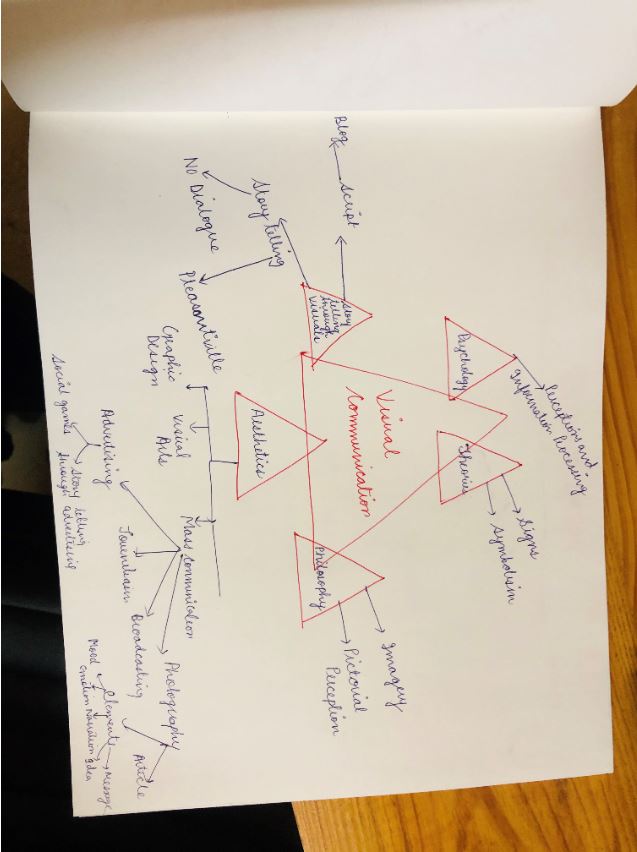 Perception and
Information Processing
Psychology
Theories
Signs
Symbolism
Blog
Script
Story
telling
through
visuals
Story telling
No Dialogue
Pleasantville
Visual
Communication
Philosophy
Imagery
Pictorial
Perception
Aesthetics
Graphic
Design
Visual
Arts
Mass Communication
Advertising
Journalism
Broadcasting
Photography
Social games
Story telling
through advertising
Article
Elements
Message
Mood
emotion
Narration
Idea